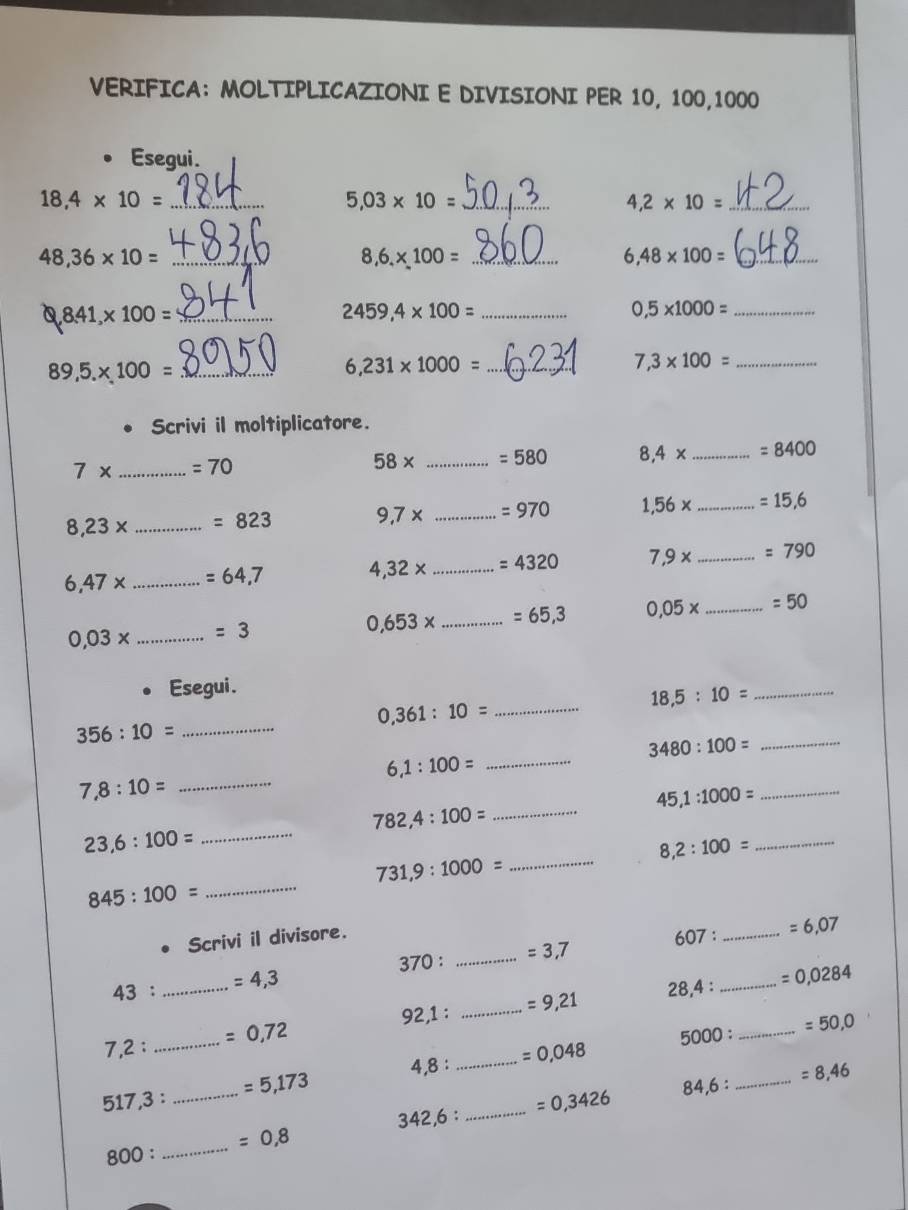 VERIFICA: MOLTIPLICAZIONI E DIVISIONI PER 10, 100,1000
• Esegui.
18,4 × 10 = 184 5,03 × 10 = 50,3 4,2 × 10 = 42
48,36 × 10 = 483,6 8,6 × 100 = 860 6,48 × 100 = 648
841 × 100 = 841 2459,4 × 100 = .................. 0,5 ×1000 = ..................
89,5 × 100 = 8950 6,231 × 1000 = 6231 7,3 × 100 = ..................
• Scrivi il moltiplicatore.
7 × .............. = 70 58 × .............. = 580 8,4 × .............. = 8400
8,23 × .............. = 823 9,7 × .............. = 970 1,56 × .............. = 15,6
6,47 × .............. = 64,7 4,32 × .............. = 4320 7,9 × .............. = 790
0,03 × .............. = 3 0,653 × .............. = 65,3 0,05 × .............. = 50
• Esegui.
356 : 10 = .................. 0,361 : 10 = .................. 18,5 : 10 = ..................
7,8 : 10 = .................. 6,1 : 100 = .................. 3480 : 100 = ..................
23,6 : 100 = .................. 782,4 : 100 = .................. 45,1 :1000 = ..................
845 : 100 = .................. 731,9 : 1000 = .................. 8,2 : 100 = ..................
• Scrivi il divisore.
43 : .............. = 4,3 370 : .............. = 3,7 607 : .............. = 6,07
7,2 : .............. = 0,72 92,1 : .............. = 9,21 28,4 : .............. = 0,0284
517,3 : .............. = 5,173 4,8 : .............. = 0,048 5000 : .............. = 50,0
800 : .............. = 0,8 342,6 : .............. = 0,3426 84,6 : .............. = 8,46